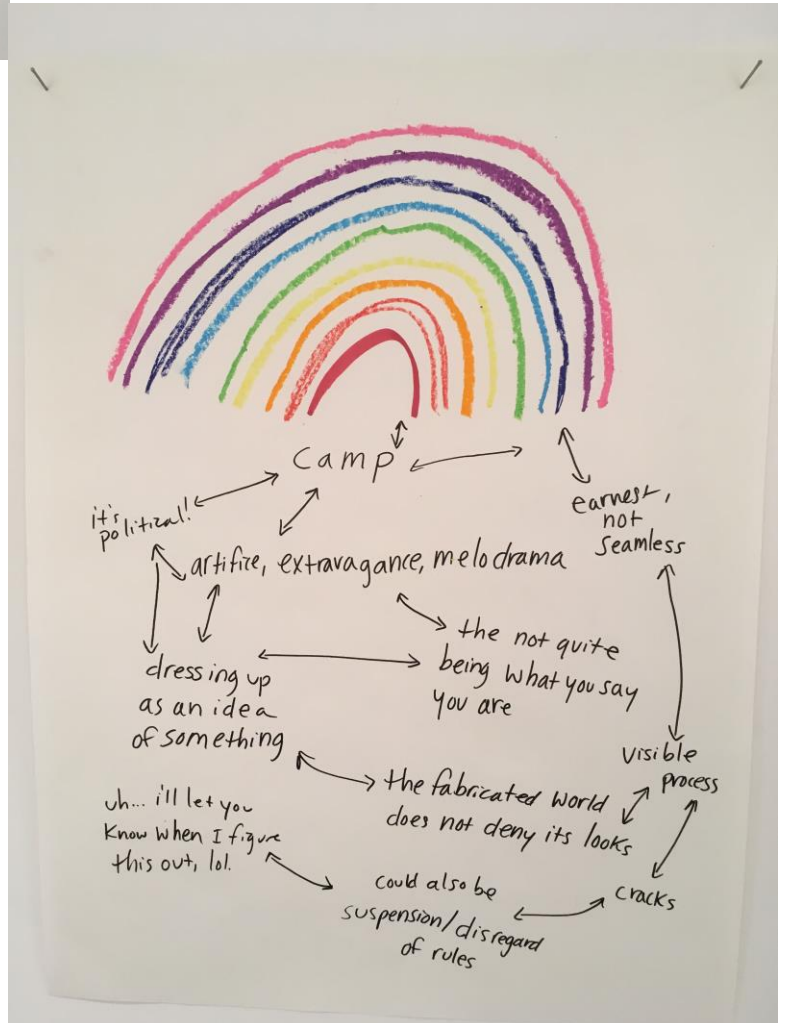 camp
it's
political!
earnest,
not
seamless
artifice, extravagance, melodrama
the not quite
being what you say
you are
dressing up
as an idea
of something
visible
process
the fabricated world
does not deny its looks
uh... i'll let you
know when I figure
this out, lol.
cracks
could also be
suspension/disregard
of rules